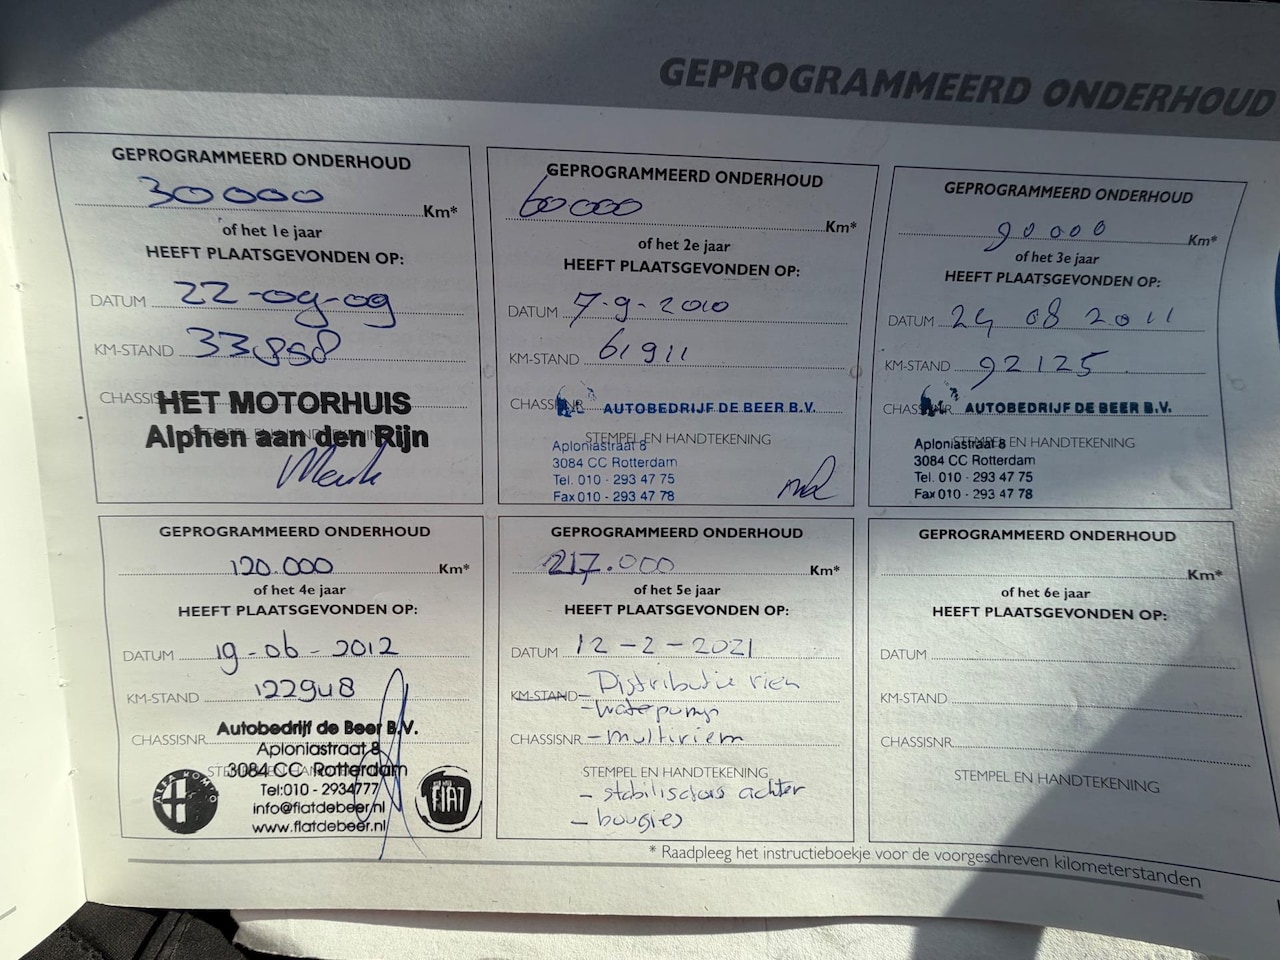 GEPROGRAMMEERD ONDERHOUD
GEPROGRAMMEERD ONDERHOUD
30000 Km*
of het 1e jaar
HEEFT PLAATSGEVONDEN OP:
DATUM 22-09-09
KM-STAND 33858
CHASSIS
HET MOTORHUIS
Alphen aan den Rijn
STEMPEL EN HANDTEKENING
GEPROGRAMMEERD ONDERHOUD
60000 Km*
of het 2e jaar
HEEFT PLAATSGEVONDEN OP:
DATUM 7-9-2010
KM-STAND 61911
CHASSISNR
AUTOBEDRIJF DE BEER B.V.
STEMPEL EN HANDTEKENING
Aploniastraat 8
3084 CC Rotterdam
Tel. 010 - 293 47 75
Fax 010 - 293 47 78
GEPROGRAMMEERD ONDERHOUD
90000 Km*
of het 3e jaar
HEEFT PLAATSGEVONDEN OP:
DATUM 24 08 2011
KM-STAND 92125
CHASSISNR
AUTOBEDRIJF DE BEER B.V.
STEMPEL EN HANDTEKENING
Aploniastraat 8
3084 CC Rotterdam
Tel. 010 - 293 47 75
Fax 010 - 293 47 78
GEPROGRAMMEERD ONDERHOUD
120.000 Km*
of het 4e jaar
HEEFT PLAATSGEVONDEN OP:
DATUM 19-06-2012
KM-STAND 122948
Autobedrijf de Beer B.V.
CHASSISNR
Aploniastraat 8
3084 CC Rotterdam
Tel:010 - 2934777
info@fiatdebeer.nl
www.fiatdebeer.nl
ALFA ROMEO
FIAT
GEPROGRAMMEERD ONDERHOUD
217.000 Km*
of het 5e jaar
HEEFT PLAATSGEVONDEN OP:
DATUM 12-2-2021
KM-STAND - Distributie riem
- waterpomp
CHASSISNR. - multiriem
STEMPEL EN HANDTEKENING
- stabilisators achter
- bougies
GEPROGRAMMEERD ONDERHOUD
Km*
of het 6e jaar
HEEFT PLAATSGEVONDEN OP:
DATUM
KM-STAND
CHASSISNR.
STEMPEL EN HANDTEKENING
* Raadpleeg het instructieboekje voor de voorgeschreven kilometerstanden